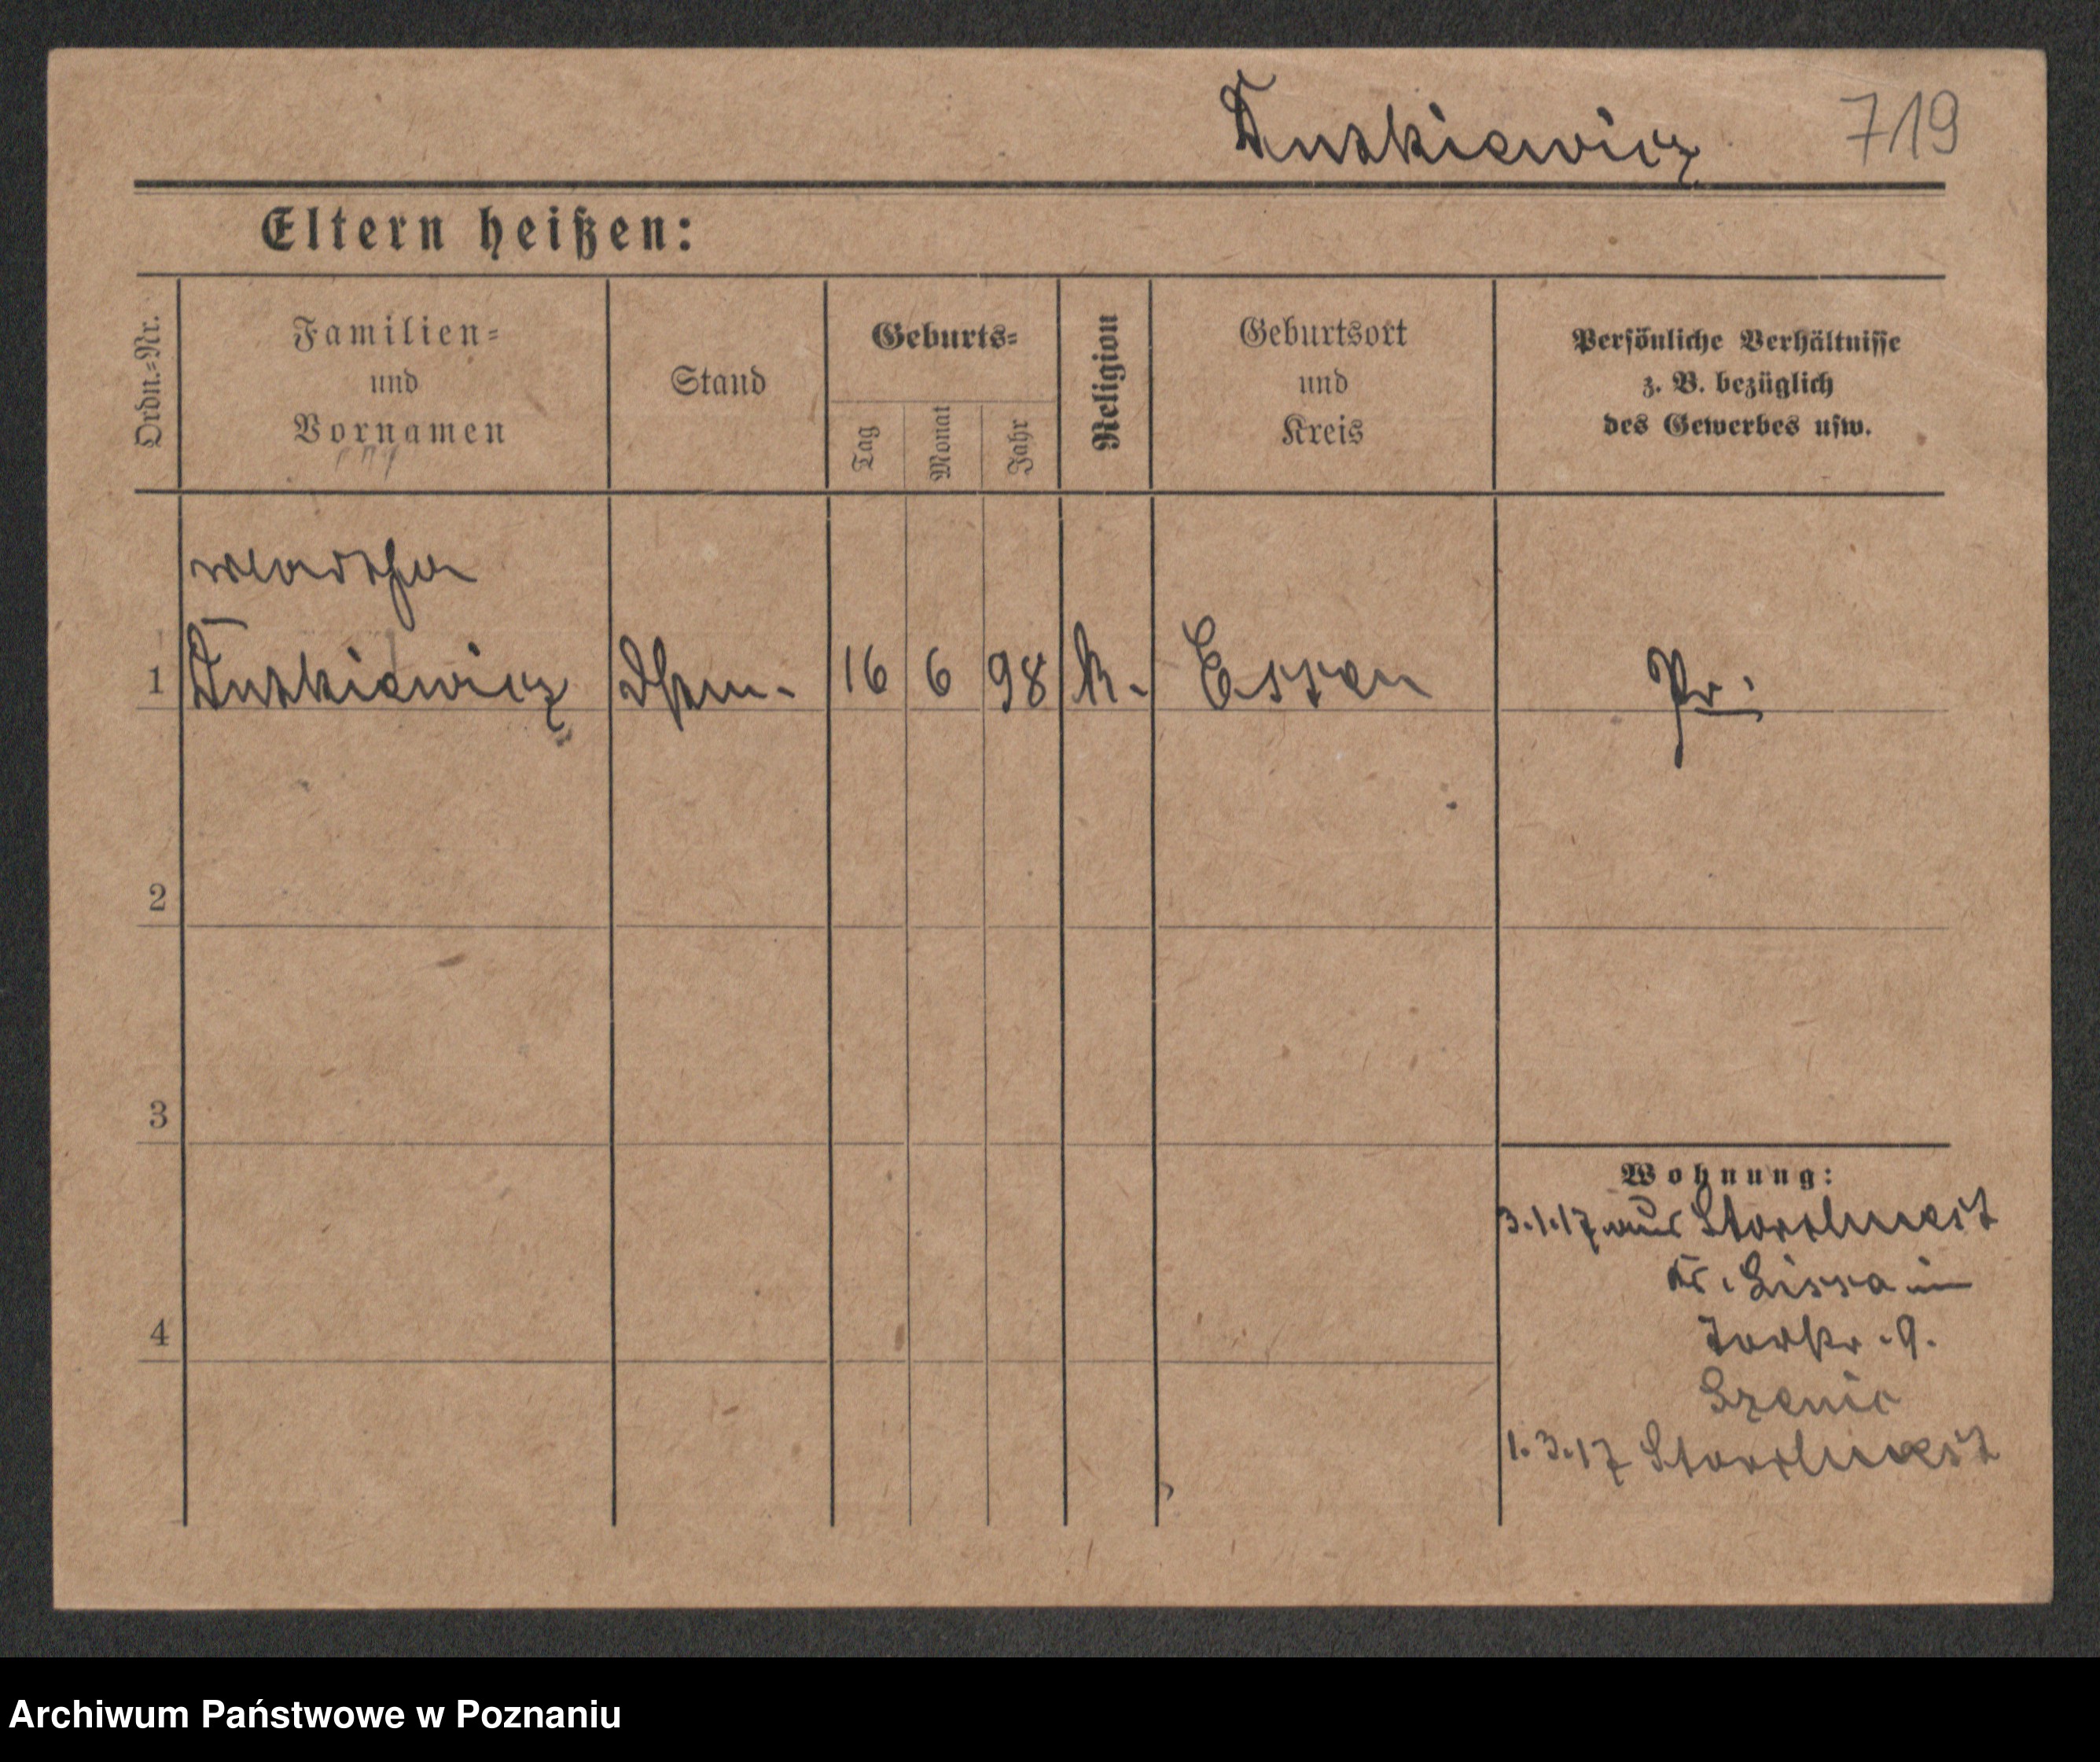 Tuskiewicz 719
Eltern heißen:
Ordn.-Nr.
Familien-
und
Vornamen
Stand
Geburts-
Tag
Monat
Jahr
Religion
Geburtsort
und
Kreis
Persönliche Verhältnisse
z. B. bezüglich
des Gewerbes usw.
Martha
1 Tuskiewicz 16 6 98 k. Essen Pr:
2
3
Wohnung:
3.1.17 aus Storchnest
Kr. Lissa in
4
1.3.17 Storchnest
Archiwum Państwowe w Poznaniu